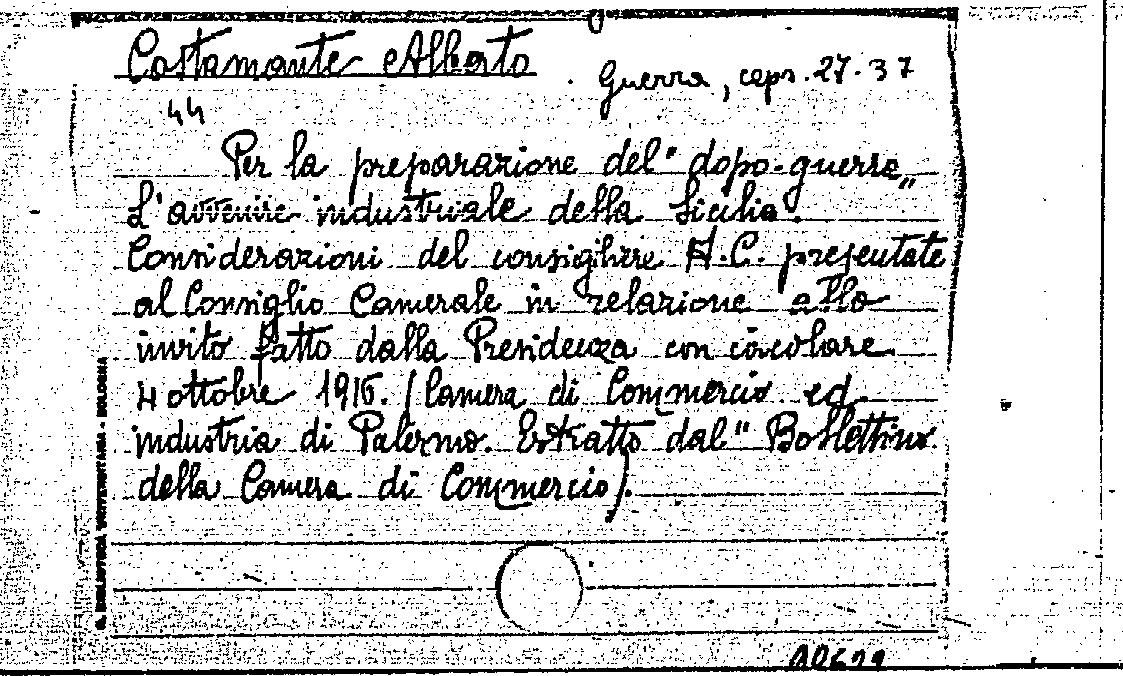 Costamante Alberto
Guerra, caps. 27.37
44
Per la preparazione del "dopo-guerra„
L'avvenire industriale della Sicilia.
Considerazioni del consigliere A.C. presentate
al Consiglio Camerale in relazione allo
invito fatto dalla Presidenza con circolare
4 ottobre 1916. (Camera di Commercio ed
industria di Palermo. Estratto dal "Bollettino
della Camera di Commercio).
R. BIBLIOTECA UNIVERSITARIA - BOLOGNA